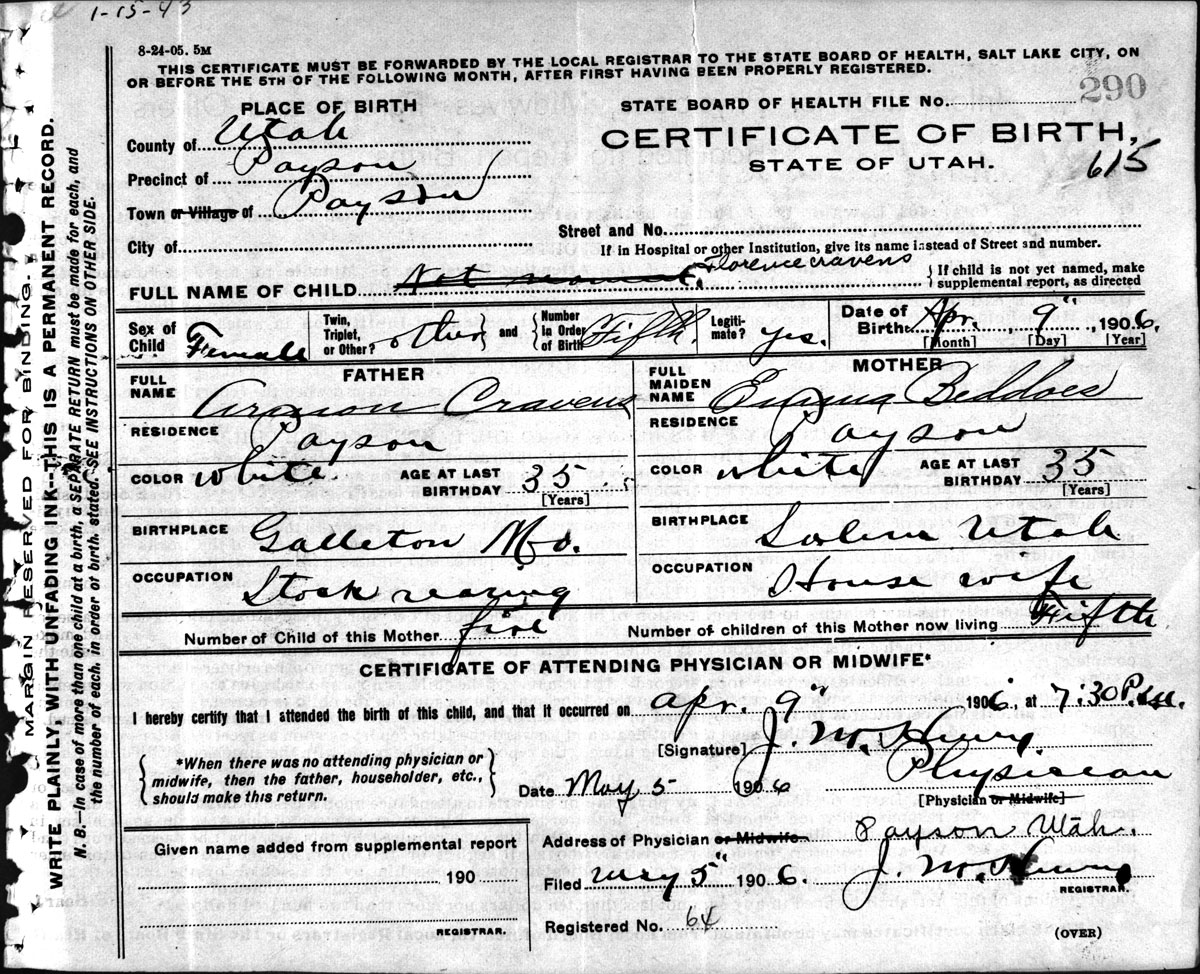 1-15-43
8-24-05. 5M
THIS CERTIFICATE MUST BE FORWARDED BY THE LOCAL REGISTRAR TO THE STATE BOARD OF HEALTH, SALT LAKE CITY, ON
OR BEFORE THE 5TH OF THE FOLLOWING MONTH, AFTER FIRST HAVING BEEN PROPERLY REGISTERED.
PLACE OF BIRTH
STATE BOARD OF HEALTH FILE No. 290
County of Utah
CERTIFICATE OF BIRTH,
STATE OF UTAH.
615
Precinct of Payson
Town or Village of Payson
Street and No.
City of
If in Hospital or other Institution, give its name instead of Street and number.
FULL NAME OF CHILD Not named. Florence Cravens
If child is not yet named, make
supplemental report, as directed
Sex of Child Female
Twin, Triplet, or Other? other and Number in Order of Birth Fifth.
Legitimate? yes.
Date of Birth Apr. 9" 1906.
[Month] [Day] [Year]
FATHER
MOTHER
FULL NAME Cravens
FULL MAIDEN NAME Emma Beddoes
RESIDENCE Payson
RESIDENCE Payson
COLOR white. AGE AT LAST BIRTHDAY 35 [Years]
COLOR white AGE AT LAST BIRTHDAY 35 [Years]
BIRTHPLACE Galleton Mo.
BIRTHPLACE Salem Utah
OCCUPATION Stock rearing
OCCUPATION House wife
Number of Child of this Mother five
Number of children of this Mother now living Fifth
CERTIFICATE OF ATTENDING PHYSICIAN OR MIDWIFE*
I hereby certify that I attended the birth of this child, and that it occurred on Apr. 9" 1906, at 7:30 P.M.
[Signature] J. M.
*When there was no attending physician or
midwife, then the father, householder, etc.,
should make this return.
Date May 5 1906
Physician
[Physician or Midwife]
Given name added from supplemental report
190
REGISTRAR.
Address of Physician or Midwife Payson Utah.
Filed May 5" 1906. J. M.
REGISTRAR.
Registered No. 64
(OVER)
MARGIN RESERVED FOR BINDING.
WRITE PLAINLY WITH UNFADING INK--THIS IS A PERMANENT RECORD.
N. B.—In case of more than one child at a birth, a SEPARATE RETURN must be made for each, and
the number of each, in order of birth, stated. SEE INSTRUCTIONS ON OTHER SIDE.